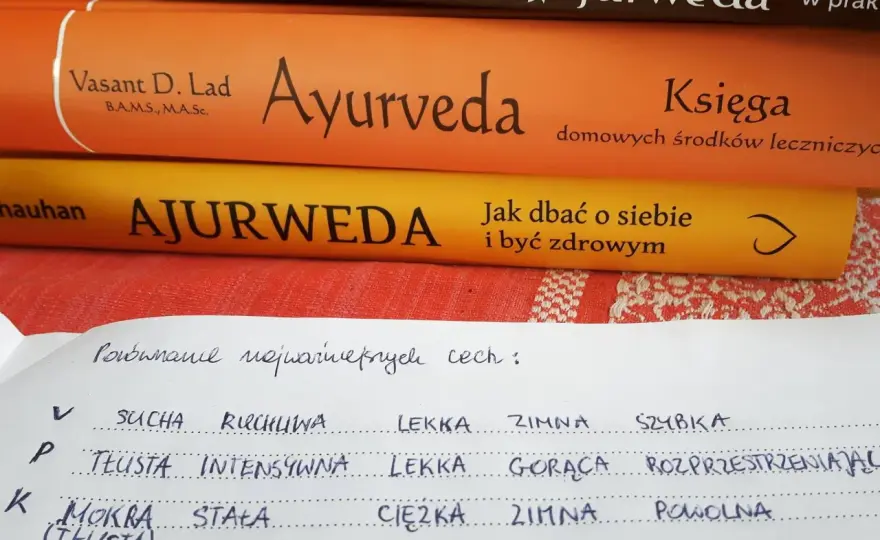 w prak
Vasant D. Lad
B.A.M.S., M.A.Sc.
Ayurveda
Księga
domowych środków leczniczyc
hauhan
AJURWEDA
Jak dbać o siebie
i być zdrowym
Porównanie najważniejszych cech:
V SUCHA RUCHLIWA LEKKA ZIMNA SZYBKA
P TŁUSTA INTENSYWNA LEKKA GORĄCA ROZPRZESTRZENIAJĄC
K MOKRA STAŁA CIĘŻKA ZIMNA POWOLNA
(TŁUSTA)